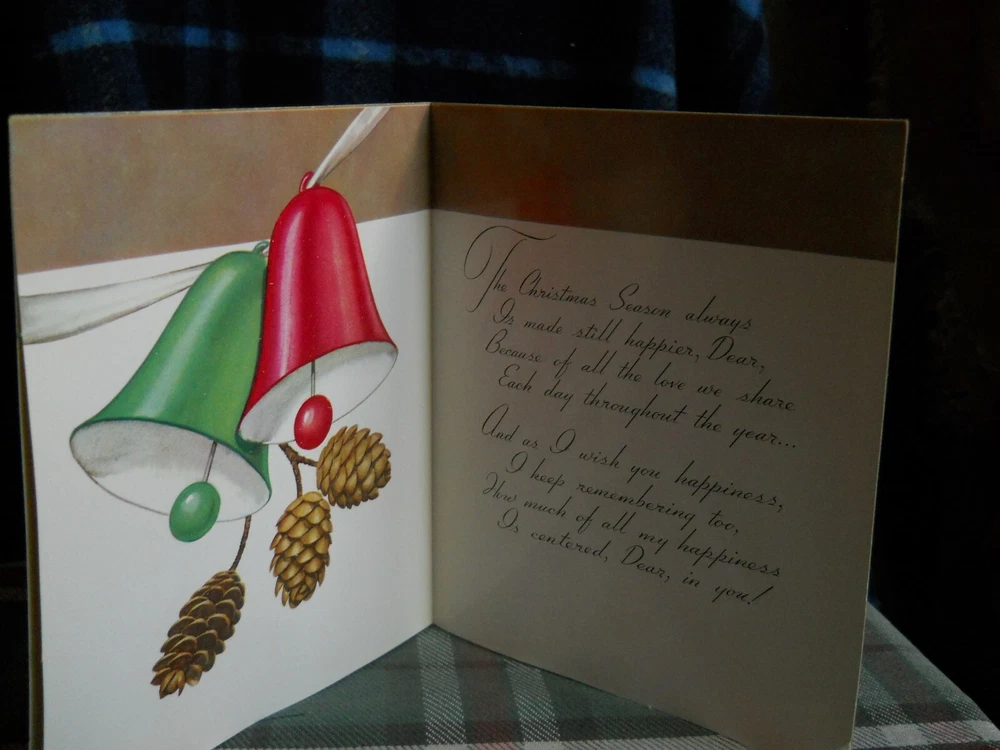 The Christmas Season always
Is made still happier, Dear,
Because of all the love we share
Each day throughout the year...
And as I wish you happiness,
I keep remembering too,
How much of all my happiness
Is centered, Dear, in you!